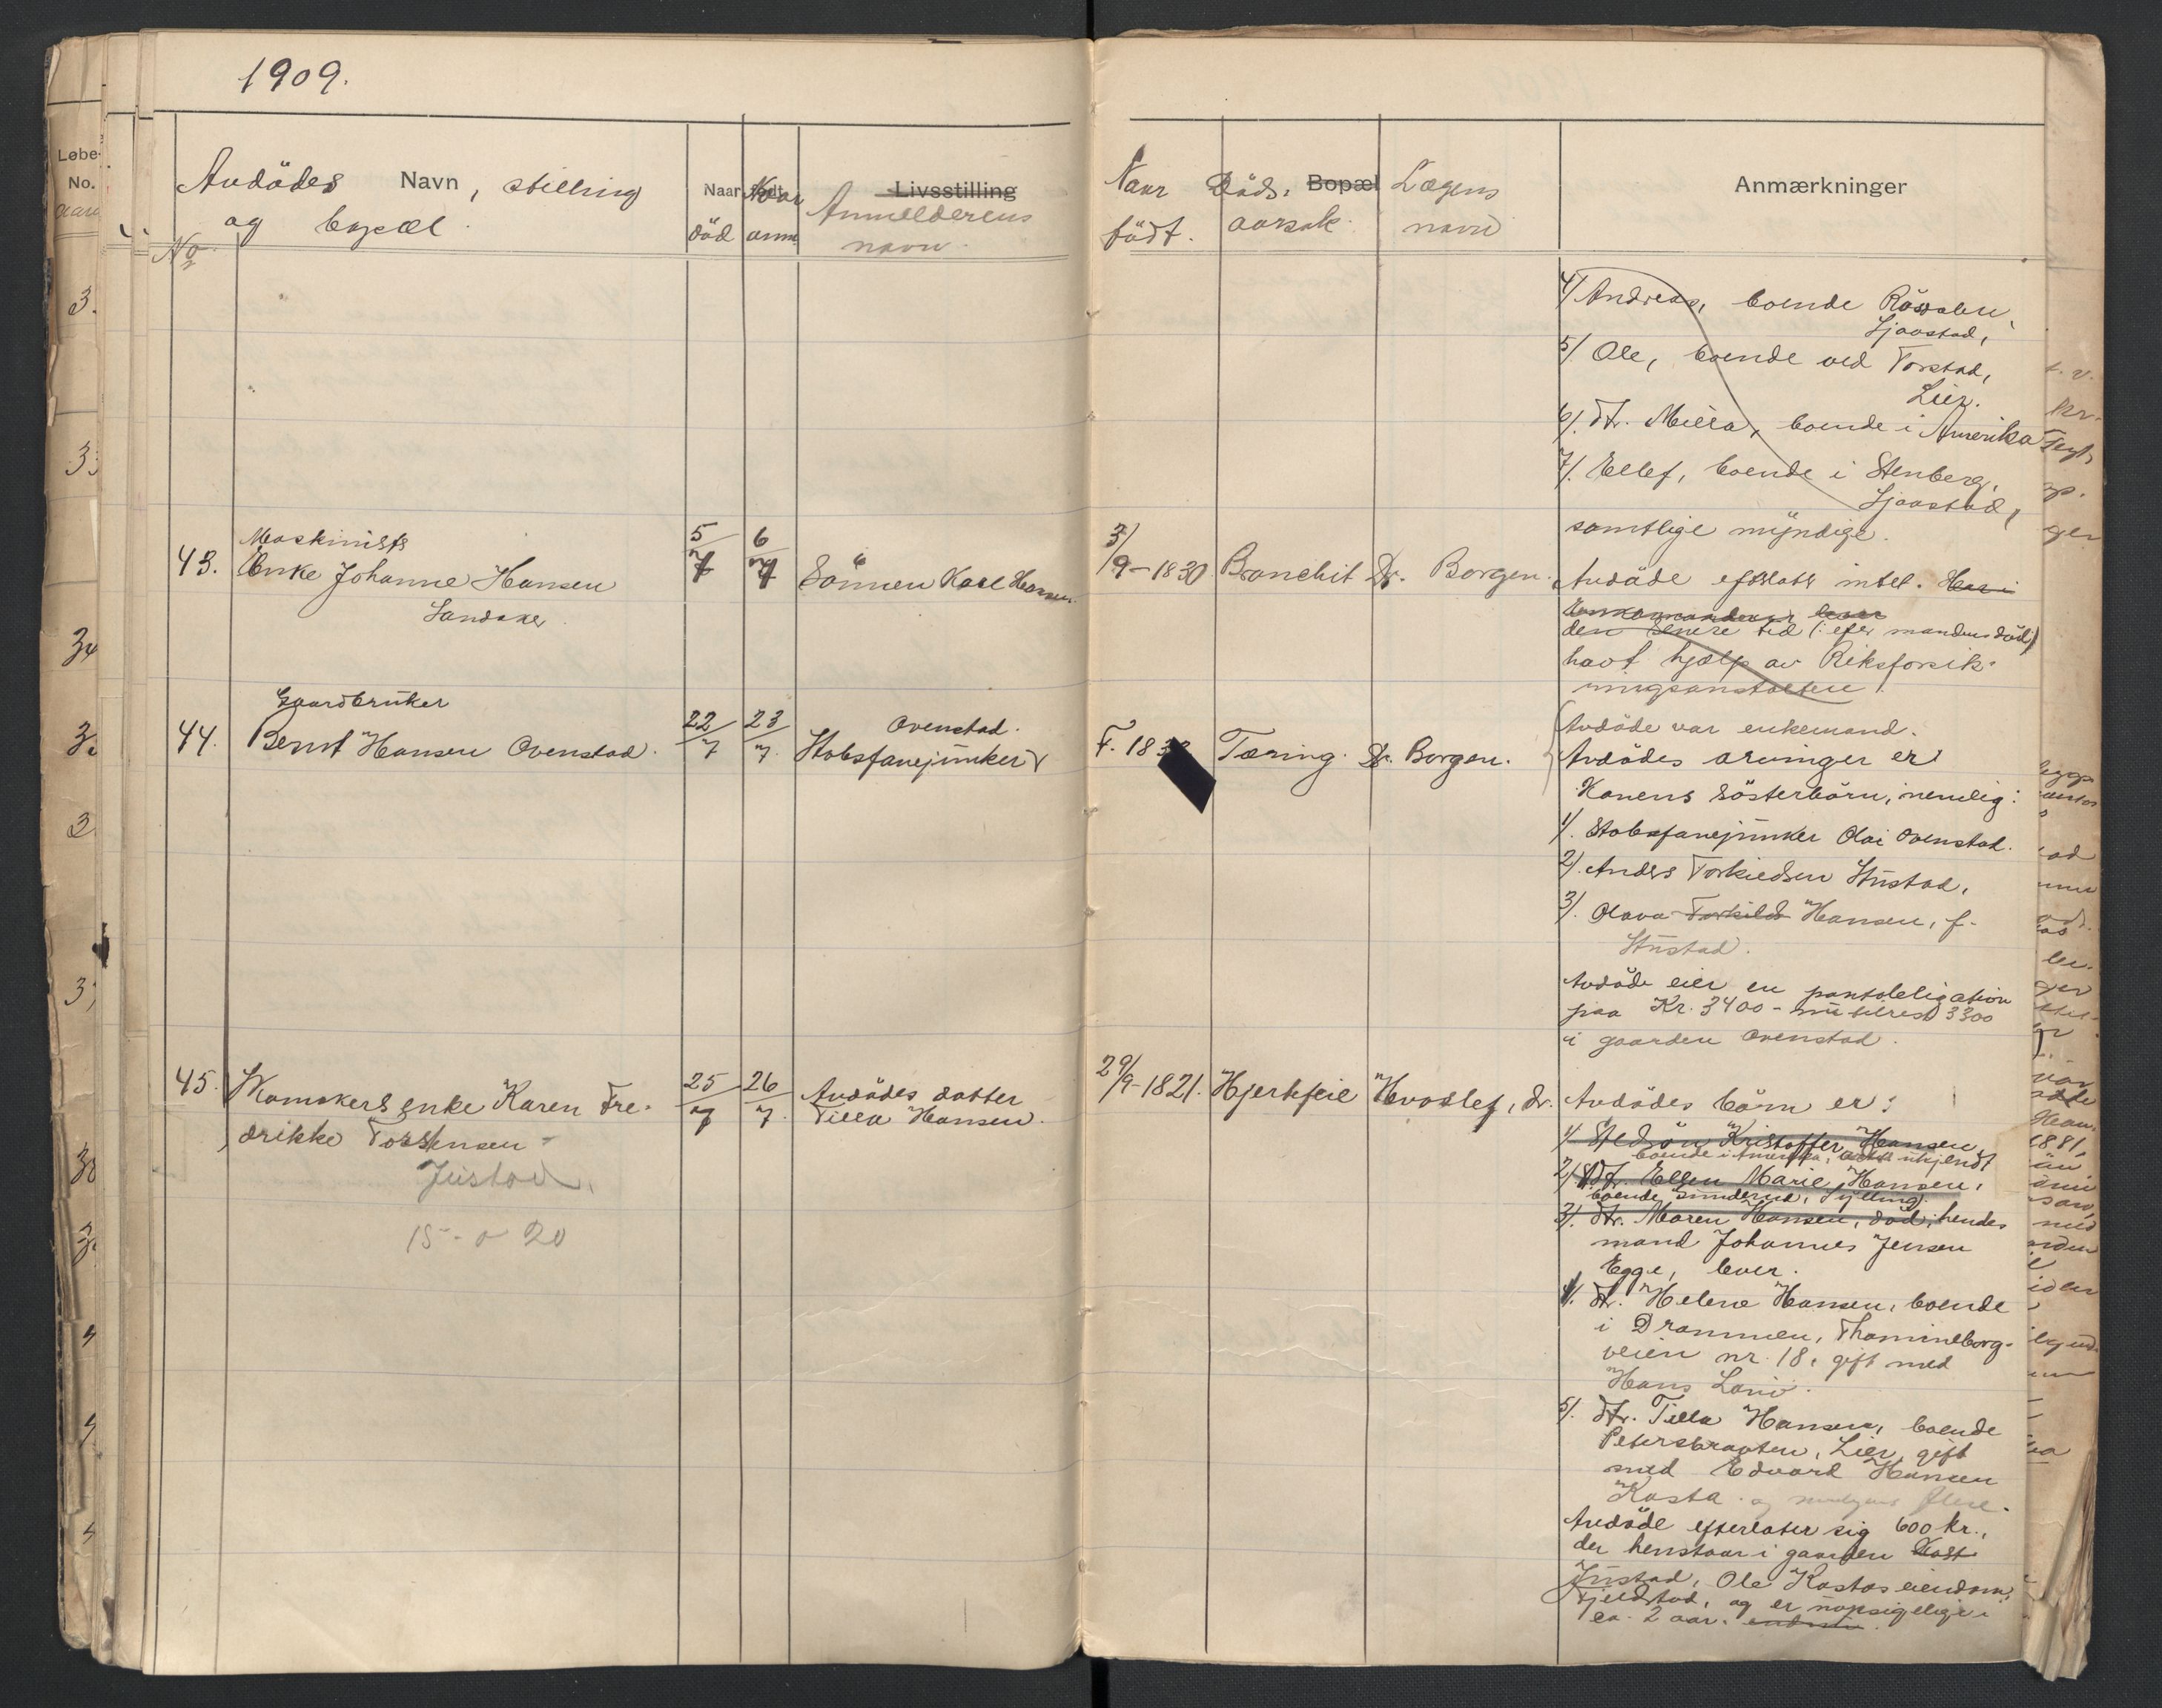 1909.
Avdödes Navn, stilling
og bopæl.
No
Naar
död
Naar
anm.
Livsstilling
Anmelderens
navn.
Naar
födt.
Döds-
aarsak.
Bopæl
Lægens
navn
Anmærkninger
4/ Andreas, boende
Sjaastad,
5/ Ole, boende ved Torstad,
Lier.
6/. dtr. boende i Amerika
7/. Ellef, boende i Stenberg,
Sjaastad,
samtlige myndige.
43.
Maskinists
Enke Johanne Hansen
Landaker
5/7
6/7
Sönnen Karl Hansen.
3/9-1830
Bronchit
Dr. Borgen.
Avdöde efterlot intet. Har i
den senere tid (: efter mandens död:)
havt hjælp av Riksforsik-
ringsanstalten.
44.
Gaardbruker
Bernt Hansen Ovenstad.
22/7
23/7.
Ovenstad.
Stabsfanejunker
F. 18
Tæring.
Dr. Borgen.
Avdöde var enkemand.
Avdödes arvinger er
Konens sösterbörn, nemlig:
1/. Stabsfanejunker Olai Ovenstad.
2/. Anders Torkildsen Hustad,
3/. Olava Torkilds Hansen, f.
Hustad.
Avdöde eier en pantobligation
paa Kr. 3400 - nu tilrest 3300
i gaarden Ovenstad.
45.
Kamakers enke Karen Fre-
drikke Torstensen
Justad.
15 - 0 20
25/7
26/7.
Avdödes datter
Tilla Hansen.
29/9-1821.
Hjertefeil
Hvoslef, dr.
Avdödes börn er:
1/ Stedsön Kristoffer Hansen,
boende i Amerika, ukjendt
2/ dtr. Ellen Marie Hansen,
boende Sylling.
3/. dtr. Maren Hansen, död, hendes
mand Johannes Jensen
Egge, lever.
4/. dtr. Helene Hansen, boende
i Drammen, Thamineborg-
veien nr. 18, gift med
Hans
5/. dtr. Tilla Hansen, boende
Petersbraaten, Lier, gift
med Edvard Hansen
Kasta. og flere.
Avdöde efterlater sig 600 kr.,
der henstaar i gaarden Kast
Justad, Ole Kastas eiendom,
Fjeldstad, og er uopsigelige i
ca. 2 aar.